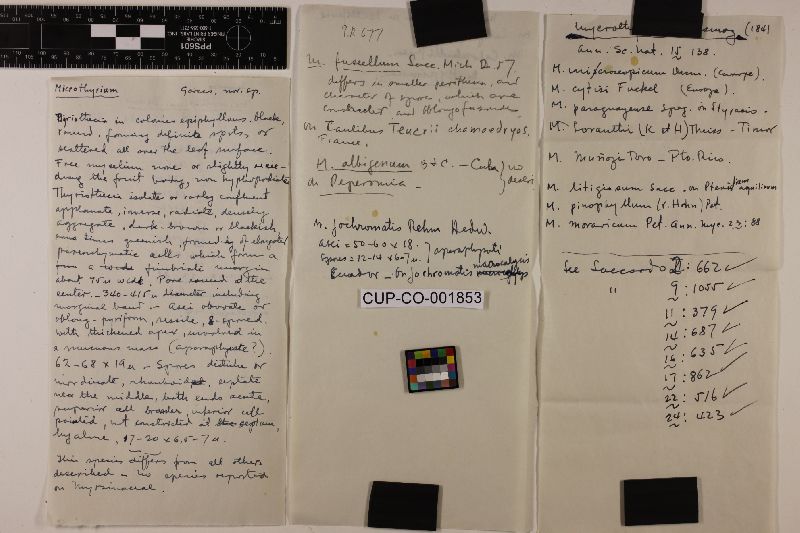 Microthyrium Garces, nov. sp.
Perithecia in colonies epiphyllous, black,
round, forming definite spots, or
scattered all over the leaf surface.
Free mycelium none or slightly
the fruit body, non hyphopodiate
Thyriothecia isolate or rarely confluent
applanate, inverse, radiate, densely
aggregate, dark-brown or blackish
some times greenish, formed of elongated
parenchymatic cells which form a
fimbriate margin
about 75 u wide. Pore round at the
center. - 340-415 u diameter including
marginal band. - Asci obovate or
oblong-pyriform, sessile, 8-spored,
with thickened apex, involved in
a mucous mass (aparaphysate?).
62-68 x 19 u - Spores distiche or
inordinate, rhomboidal, septate
near the middle, both ends acute,
superior cell broader, inferior cell
pointed, not constricted at septum,
hyaline, 17-20 x 6.5-7 u.
This species differs from all others
described - no species reported
on Myrsinaceae.
P.R 677
M. fuscellum Sacc. Mich II. 57
differs in smaller perithecia, and
character of spores, which are
constricted and oblong fusoid
on Caulibus Teucrii chamaedryos.
France.
M. albigenum B & C. - Cuba } no
on Peperomia - descr.
M. Jochromatis Rehm Hedw.
Asci = 50-60 x 18 } aparaphysati
Spores = 12-14 x 6-7 u.
Ecuador - on Jochromatis macrocalycis
CUP-CO-001853
(1841
Ann. Sc. nat. 15 138.
M. microscopicum Desm. (Europe).
M. cytisi Fuckel (Europa).
M. paraguayense Speg. on Styracis.
M. Loranthi (K et H) Theiss - Timor
M. Muñozii Toro - Pto. Rico.
M. litigiosum Sacc. on Pteris aquilinum
M. pinophyllum (v. Hohn) Pet.
M. moravicum Pet. Ann. Myc. 23: 88
See Saccardo 2: 662 ✓
" 9: 1055 ✓
11: 379 ✓
14: 687 ✓
16: 635 ✓
17: 862 ✓
22: 516 ✓
24: 423 ✓